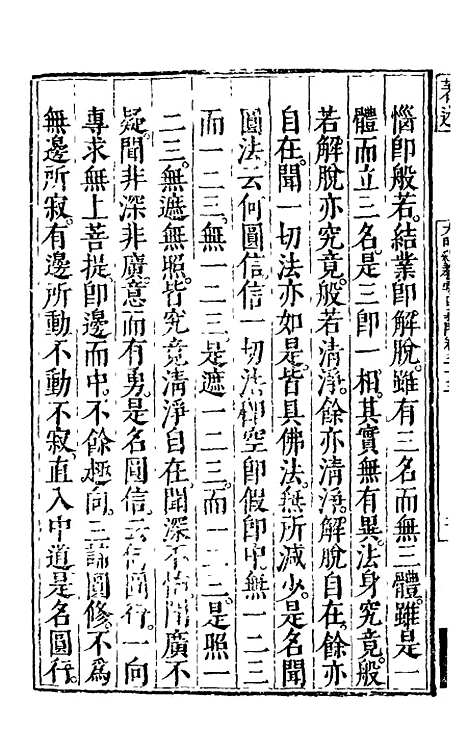 惱即般若。結業即解脫。雖有三名而無三體。雖是一
體而立三名。是三即一相。其實無有異。法身究竟。般
若解脫亦究竟。般若清淨。餘亦清淨。解脫自在。餘亦
自在。聞一切法亦如是。皆具佛法。無所減少。是名聞
圓法。云何圓信。信一切法即空即假即中。無一二三
而一二三。無一二三。是遮一二三。而一二三。是照一
二三。無遮無照。皆究竟清淨自在。聞深不怖。聞廣不
疑。聞非深非廣。意而有勇。是名圓信。云何圓行。一向
專求無上菩提。即邊而中。不餘趣向。三諦圓修。不為
無邊所寂。有邊所動。不動不寂。直入中道。是名圓行。